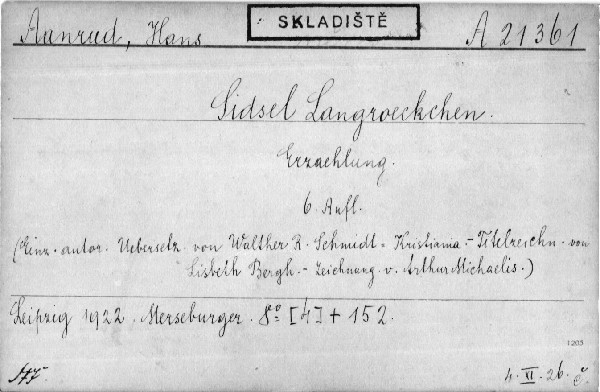 Aanrud, Hans
SKLADIŠTĚ
A 21361
Sidsel Langroeckchen.
Erzaehlung.
6. Aufl.
(Einz. autor. Uebersetz. von Walther R. Schmidt = Kristiania. - Titelzeichn. von
Lisbeth Bergh. - Zeichnung v. Arthur Michaelis.)
Leipzig 1922. Merseburger. 8° [4] + 152.
1203
4. XI. 26. č.